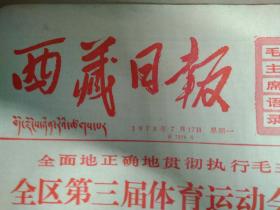 西藏日报
毛主席语录
1978年7月17日 星期一
全面地正确地贯彻执行毛主
全区第三届体育运动